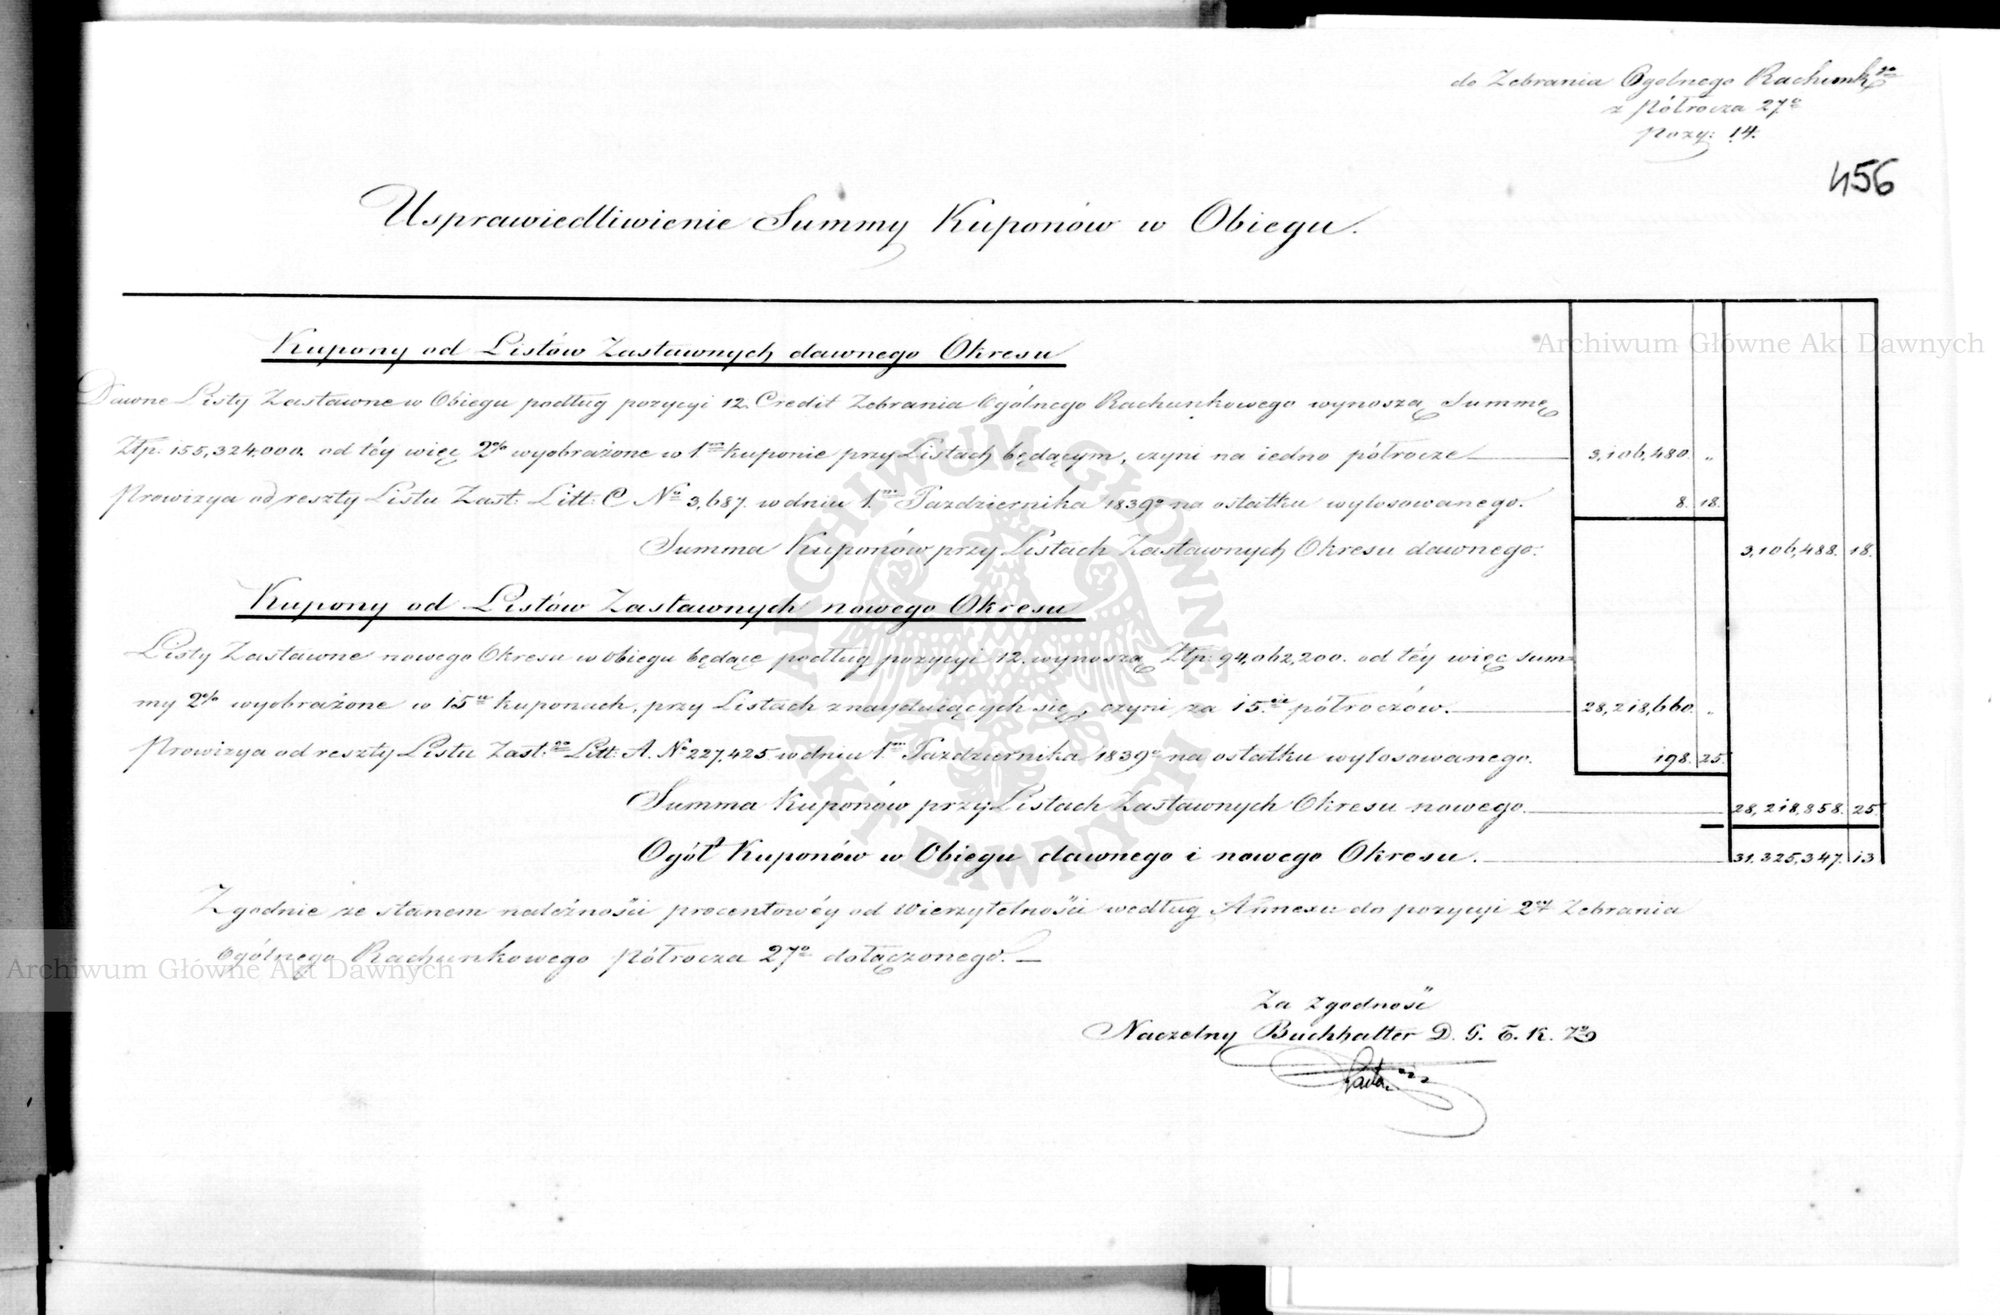 do Zebrania Ogolnego Rachunk<sup>go</sup>
z Półrocza 27<sup>o</sup>
Pozy: 14.
456
Usprawiedliwienie Summy Kuponów w Obiegu.
Kupony od Listów Zastawnych dawnego Okresu
Dawne Listy Zastawne w Obiegu podług pozycyi 12. Credit Zebrania Ogólnego Rachunkowego wynoszą Summę
Złp. 155,324,000. od téy więc 2% wyobrażone w 1<sup>m</sup> kuponie przy Listach będącym, czyni na iedno półrocze 3,106,480. „
Prowizya od reszty Listu Zast: Litt: C N<sup>o</sup> 3,687. w dniu 1.<sup>m</sup> Pazdziernika 1839<sup>o</sup> na ostatku wylosowanego. 8. 18.
Summa Kuponów przy Listach Zastawnych Okresu dawnego. 3,106,488. 18.
Kupony od Listów Zastawnych nowego Okresu
Listy Zastawne nowego Okresu w obiegu będące podług pozycyi 12. wynoszą Złp: 94,062,200. od téy więc sum=
my 2% wyobrażone w 15<sup>u</sup> kuponach, przy Listach znayduiących się, czyni za 15.<sup>cie</sup> półroczów. 28,218,660. „
Prowizya od reszty Listu Zast:<sup>go</sup> Litt: A. N<sup>o</sup> 227,425 w dniu 1<sup>m</sup> Pazdziernika 1839<sup>o</sup> na ostatku wylosowanego. 198. 25.
Summa Kuponów przy Listach Zastawnych Okresu nowego. 28,218,858. 25.
Ogół Kuponów w Obiegu dawnego i nowego Okresu. 31,325,347. 13
Zgodnie ze stanem należności procentowéy od Wierzytelności według Annexu do pozycyi 2<sup>éy</sup> Zebrania
Ogólnego Rachunkowego Półrocza 27<sup>o</sup> dołączonego. —
Za zgodność
Naczelny Buchhalter D. G. T. K. Z<sup>o</sup>
Archiwum Główne Akt Dawnych
Archiwum Główne Akt Dawnych
ARCHIWUM GŁÓWNE AKT DAWNYCH